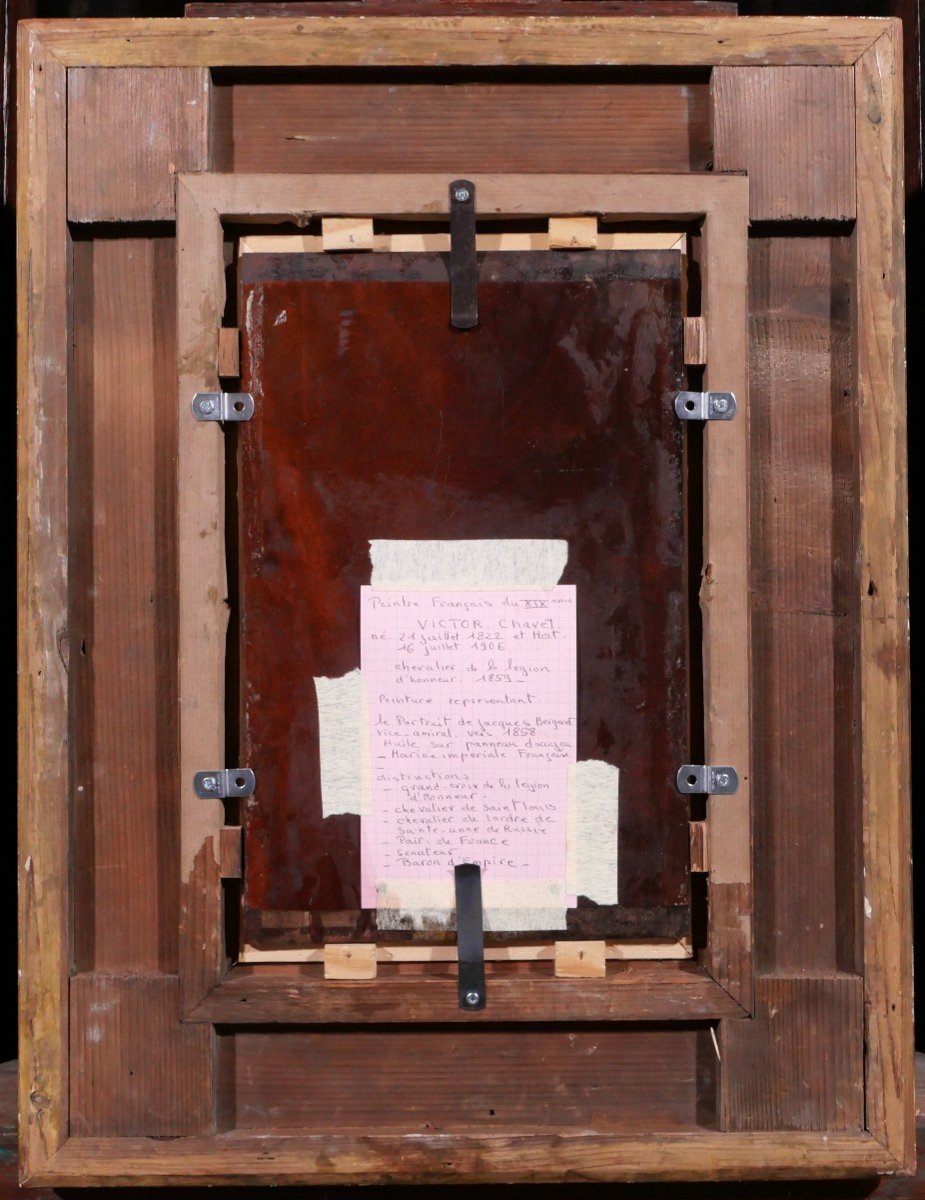 Peintre Français du XIX eme
VICTOR Chavet
né. 21 juillet 1822 et Mort.
16 juillet 1906
chevalier de la legion
d'honneur. 1859 -
Peinture representant
le Portrait de Jacques Bergeret
vice-amiral. vers 1858
Huile sur panneau d'acajou
- Marine impériale Française
-
distinctions
- grand-croix de la legion
d'Honneur.
- chevalier de saint louis
- chevalier de l'ordre de
Sainte-anne de Russie
- Pair de France
- Sénateur
- Baron d'Empire -